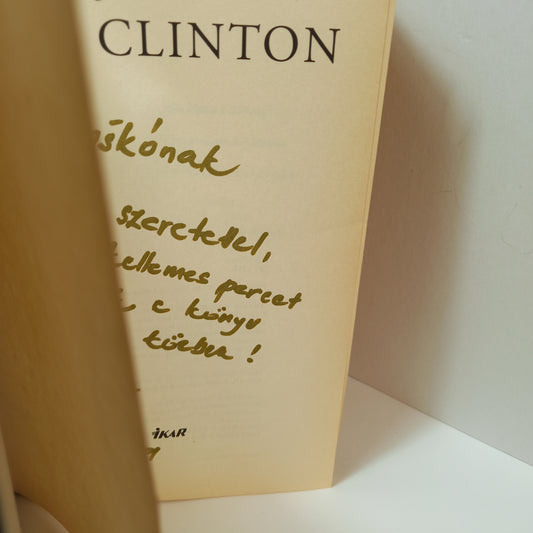 CLINTON
škónak
szeretettel,
kellemes percet
e könyv
közben !
IKAR